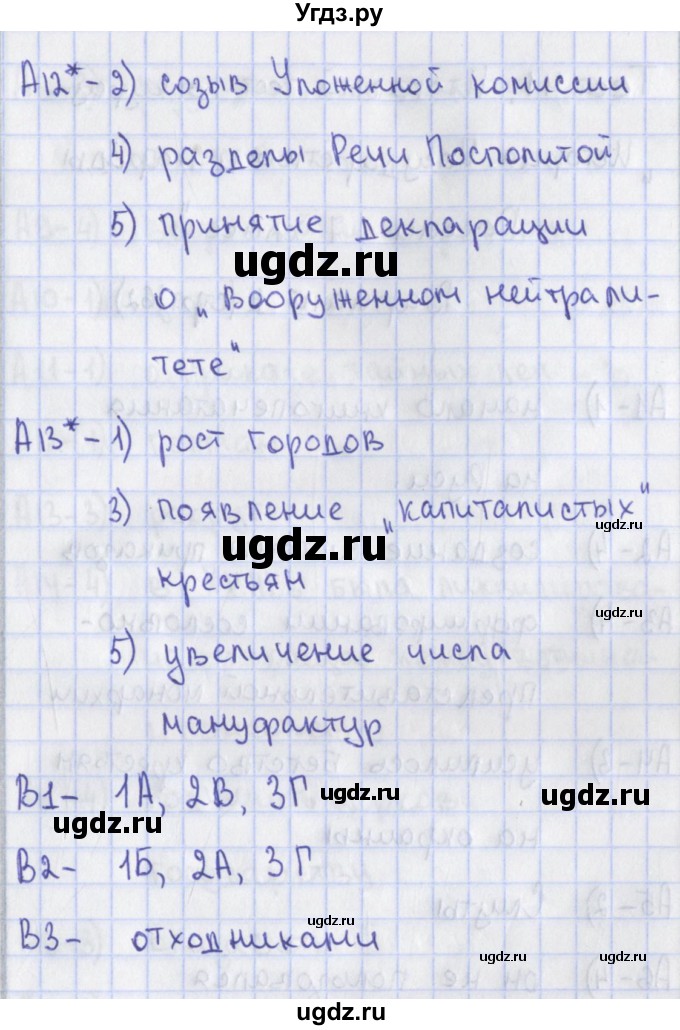 Угдз.ру
А12*- 2) созыв Уложенной комиссии
4) разделы Речи Посполитой
5) принятие декларации
ugdz.ru
о „Вооруженном нейтрали-
тете"
А13*- 1) рост городов
3) появление „капиталистых"
ugdz.ru
ugdz.ru
крестьян
ugdz.ru
5) увеличение числа
мануфактур
В1- 1А, 2В, 3Г ugdz.ru ugdz.ru
ugdz.ru
В2- 1Б, 2А, 3Г
ugdz.ru
В3- отходниками
ugdz.ru
ugdz.ru